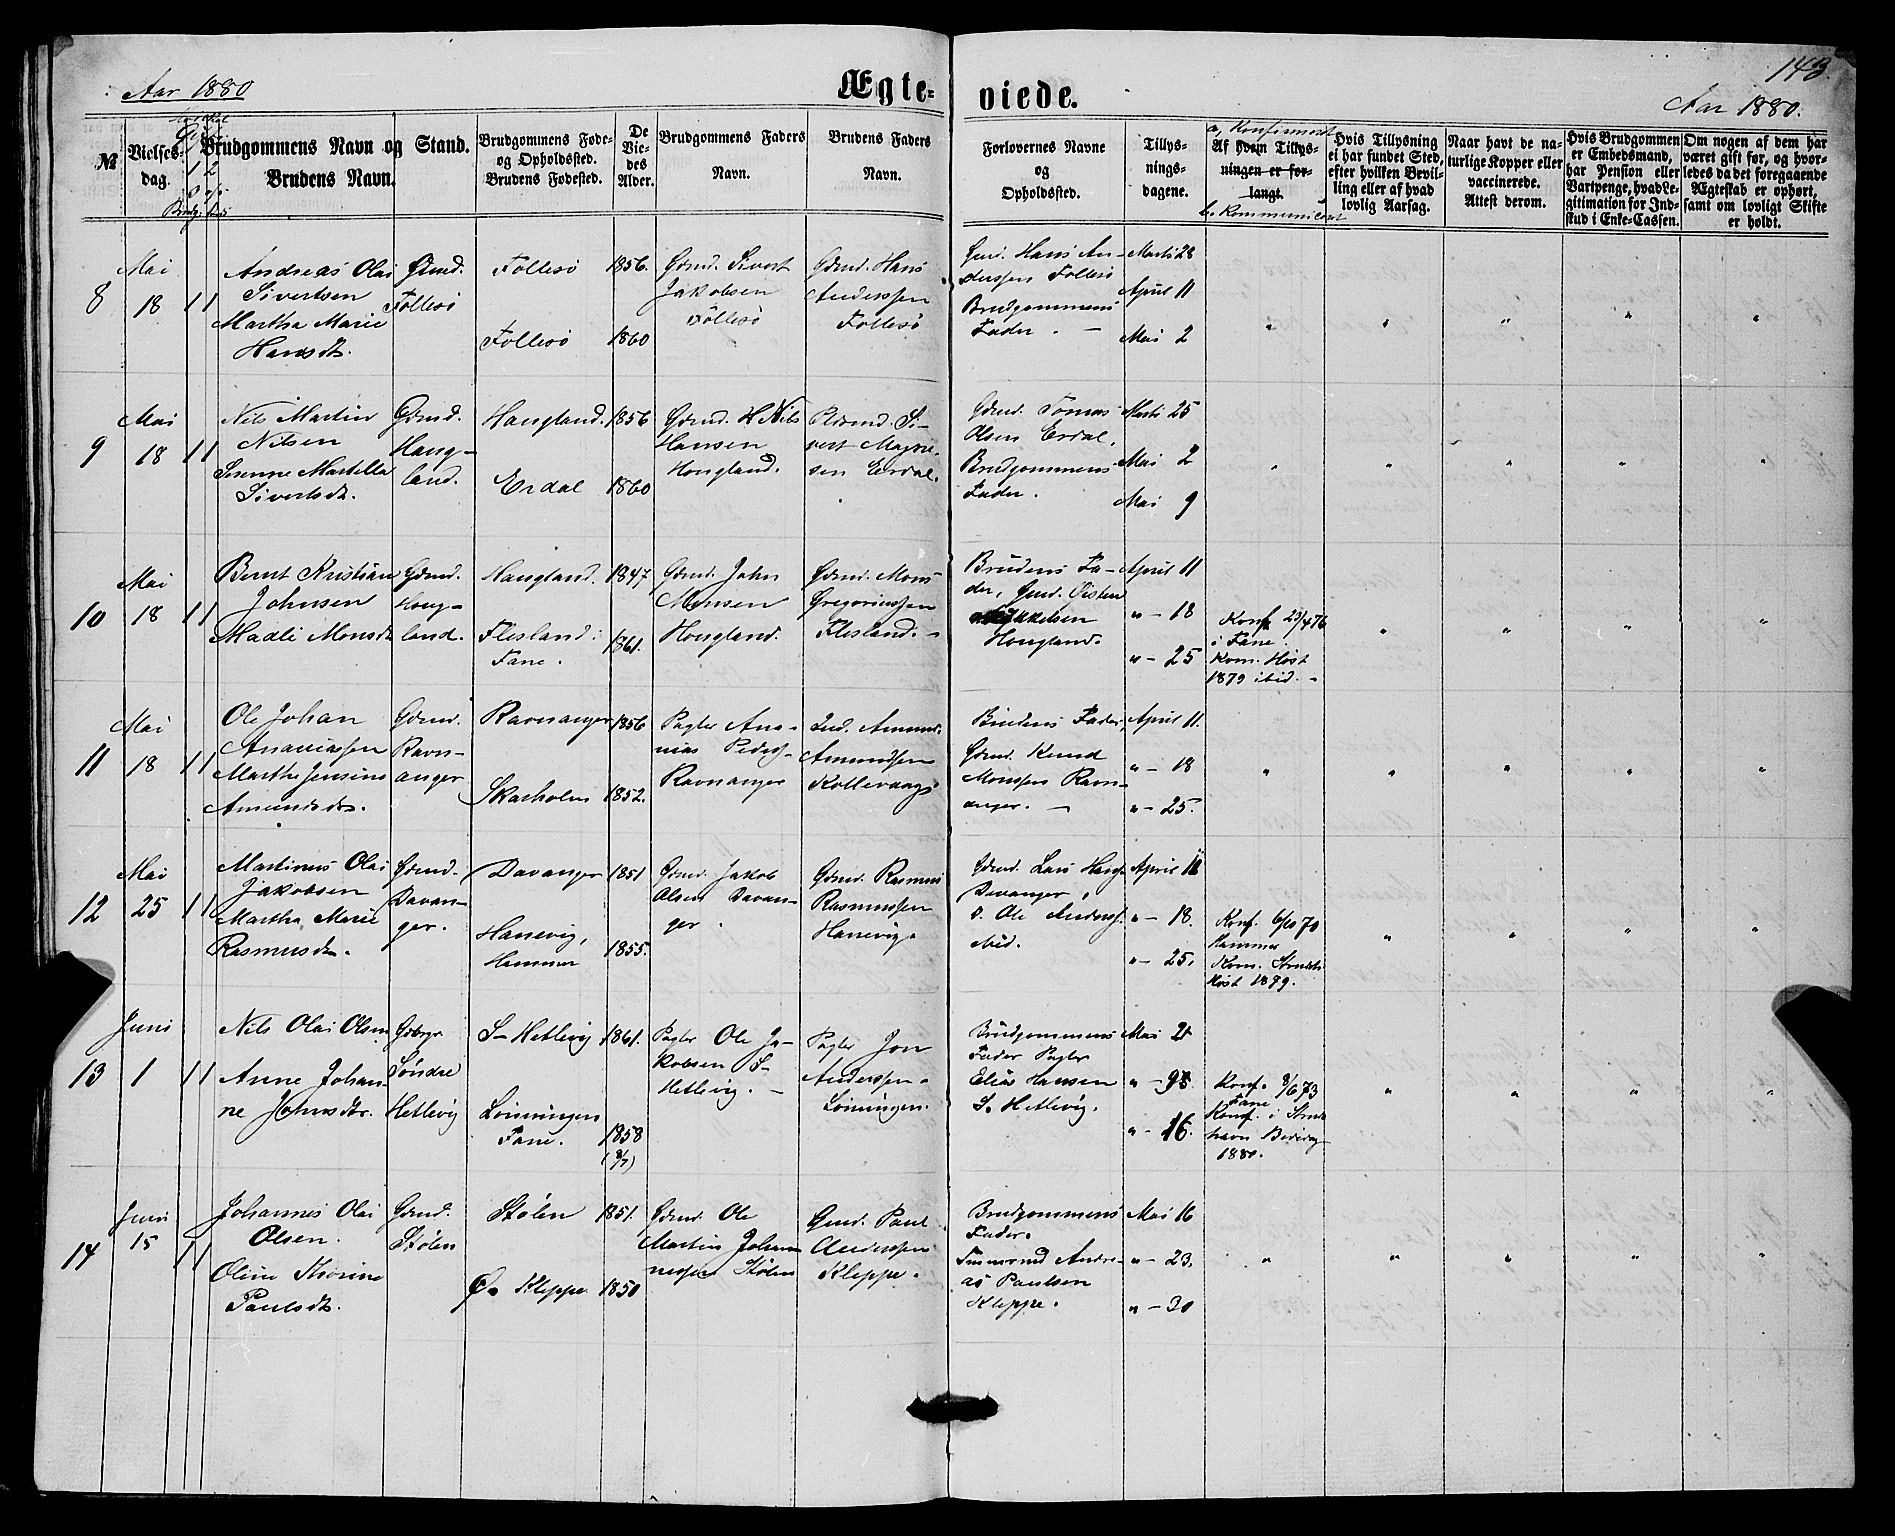 Aar 1880
Ægte-
viede.
143.
Aar 1880.
№
Vielses-
dag.
Brudgommens Navn og
Brudens Navn.
Stand.
Brudgommens Føde-
og Opholdssted.
Brudens Fødested.
De
Vie-
des
Alder.
Brudgommens Faders
Navn.
Brudens Faders
Navn.
Forlovernes Navne
og
Opholdssted.
Tillys-
nings-
dagene.
a, Konfirmeret
Af hvem Tillys-
ningen er for-
langt.
b. Kommuniceret
Hvis Tillysning
ei har fundet Sted,
efter hvilken Bevil-
ling eller af hvad
lovlig Aarsag.
Naar havt de na-
turlige Kopper eller
vaccinerede.
Attest derom.
Hvis Brudgommen
er Embedsmand,
har Pension eller
Vartpenge, hvad Le-
gitimation for Ind-
skud i Enke-Cassen.
Om nogen af dem har
været gift før, og hvor-
ledes da det foregaaende
Ægteskab er ophørt,
samt om lovligt Skifte
er holdt.
8
Mai
18
1 1
Andreas Olai
Sivertsen
Martha Marie
Hansdtr.
Gmd.
Follesö
Follesö
Follesö
1856.
1860
Gdmd. Sivert
Jakobsen
Follesö
Gdmd. Hans
Anderssen
Follesö
Gmd. Hans An-
derssen Follesö
Brudgommens
Fader. —
Marts 28
April 11
Mai 2
" " " " "
9
Mai
18
1 1
Nils Martin
Nilsen
Serenne Martella
Sivertsdtr.
Gdmd.
Haug-
land.
Haugland.
Erdal
1856
1860
Gdmd. Nils
Hansen
Hougland.
Si-
vert Magne-
sen Erdal.
Gdmd. Tomas
Olsen Erdal.
Brudgommens
Fader.
Marts 25
Mai 2
Mai 9
" " " " "
10
Mai
18
1 1
Bernt Kristian
Johnsen
Madli Monsdtr
Gdmd.
Houg-
land.
Haugland.
Flesland.
Fane.
1847
1861.
Gdmd. John
Monsen
Hougland.
Gdmd. Mons
Gregoriussen
Flesland. –
Brudens Fa-
der, Gmd. Östen
Mikkelsen
Hougland.
April 11
" – 18
" – 25
Konf. 23/4 76
i Fane
Kom. Höst
1879 ibid. –
" " " "
11
Mai
18
1 1
Ole Johan
Ananiassen
Marthe Jensine
Amundsdtr.
Gdmd.
Ravn-
anger
Ravnanger
Skarholm
1856
1852.
Pagter Ana-
nias Peders.
Ravnanger
Amund
Amundsen
Kollevaag
Brudens Fader,
Gdmd. Knud
Monssen Ravn-
anger. —
April 11.
" – 18
" – 25.
" " " " "
12
Mai
25
1 1
Martinus Olai
Jakobsen
Martha Marie
Rasmusdtr.
Gdmd.
Davan-
ger.
Davanger
Hanevig,
Hammer
1851
1855.
Gdmd. Jakob
Olsen Davan-
ger.
Gdmd. Rasmus
Rasmussen
Hanevig.
Gdmd. Lars Hans.
Davanger,
o. Ole Anderss.
ibid.
April 11
" – 18.
" – 25.
Konf. 6/10 70
Hammer
Kom.
Höst 1879.
" " " "
13
Juni
1
1 1
Nils Olai Olsen
Anne Johan-
ne Johnsdtr.
Gdbgr
Söndre
Hetlevig
S– Hetlevig
Lönningen
Fane.
1861.
1858
(8/7)
Pagter Ole Ja-
kobsen S–
Hetlevig. —
Pagter Jon
Anderssen.
Lönningen.
Brudgommens
Fader Pagter
Elias Hansen
S. Hetlevig.
Mai 2
" – 9
" – 16.
Konf. 8/6 73
Fane
Konf. i Strud-
havn Bededag
1880.
" " " "
14
Juni
15
1 1
Johannes Olai
Olsen.
Oline Thorine
Paulsdtr.
Gdmd.
Stölen
Stölen
Ö. Kleppe
1851.
1850
Gdmd. Ole
Martin Johan-
nessen Stölen
Gmd. Paul
Anderssen
Kleppe.
Brudgommens
Fader.
Andre-
as Paulsen
Kleppe.
Mai 16
" – 23.
" – 30
" " " " "